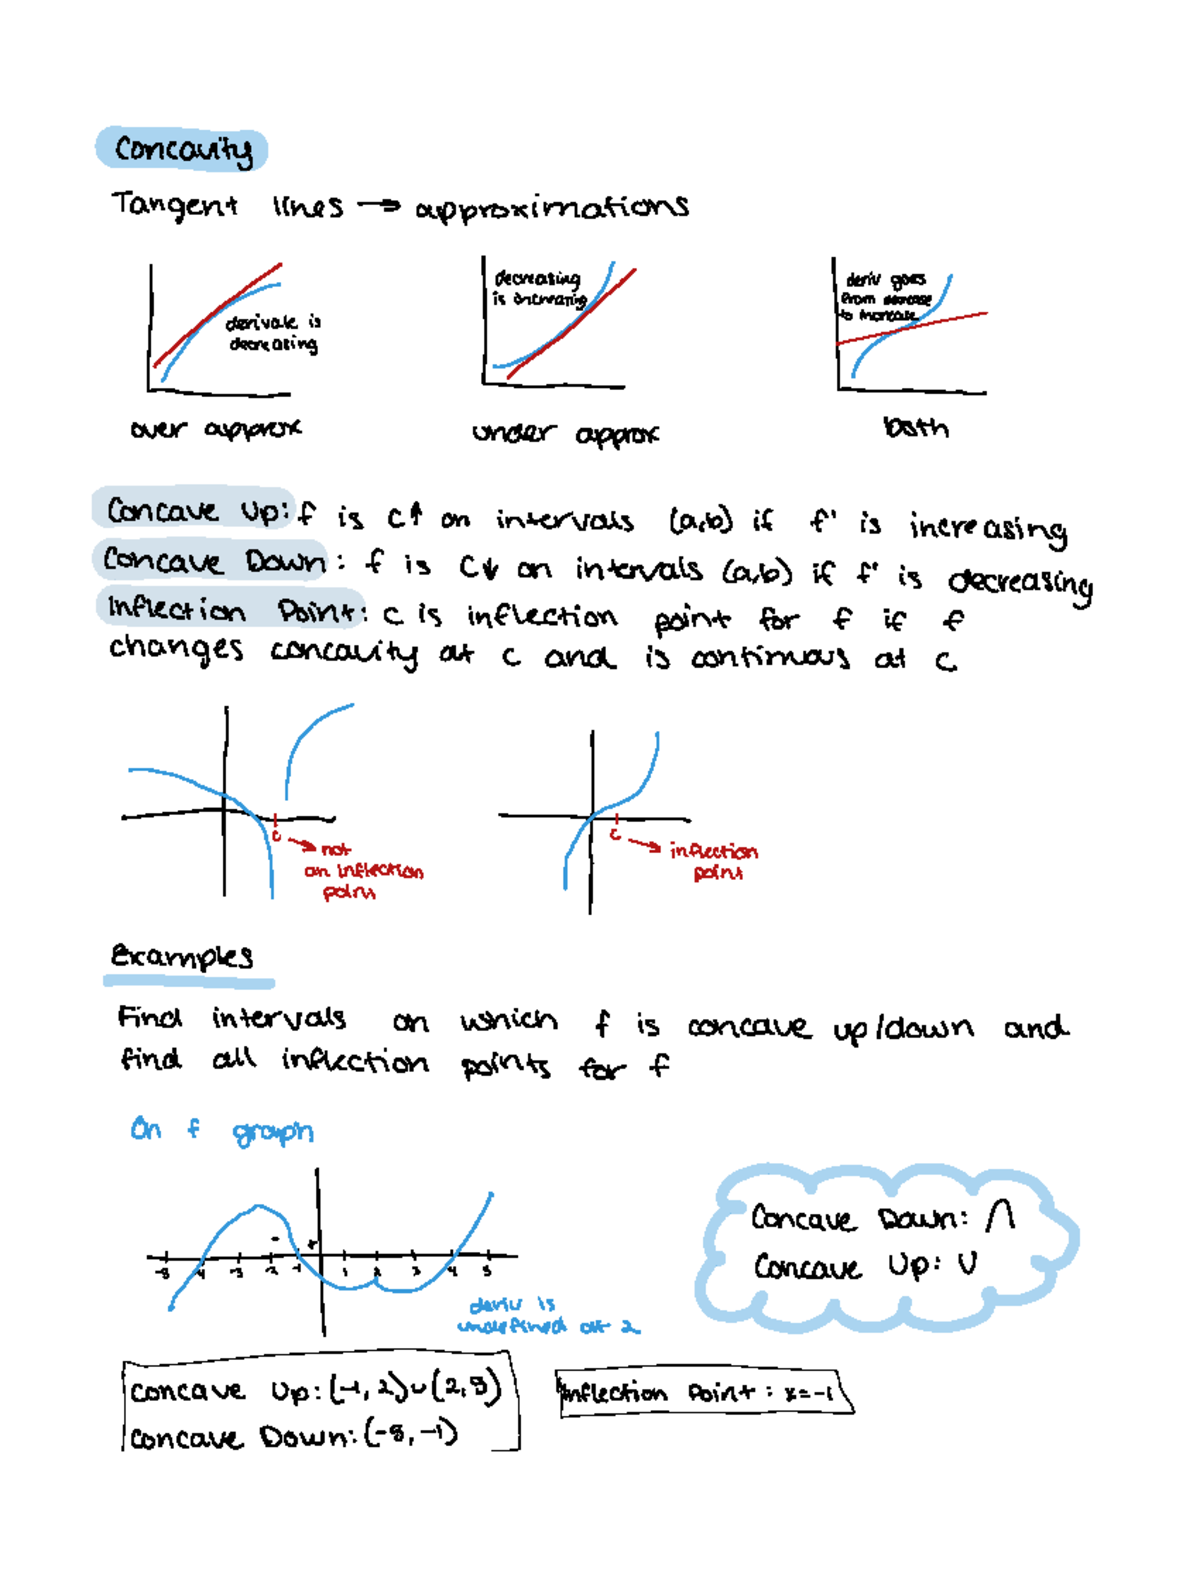 Concavity
Tangent lines → approximations
derivate is
decreasing
over approx
decreasing
is increasing
under approx
deriv goes
from decrease
to increase
both
Concave Up: f is C↑ on intervals (a,b) if f' is increasing
Concave Down: f is C↓ on intervals (a,b) if f' is decreasing
Inflection Point: c is inflection point for f if f
changes concavity at c and is continuous at c
c → not
an inflection
point
c → inflection
point
Examples
Find intervals on which f is concave up/down and
find all inflection points for f
On f graph
- +
-5 -4 -3 -2 -1 1 2 3 4 5
deriv is
undefined at 2
Concave Down: ∩
Concave Up: ∪
Concave Up: (-1, 2)∪(2,5)
Concave Down: (-5, -1)
Inflection Point: x=-1